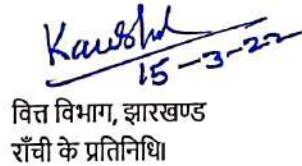 Kaushal
15-3-22
वित्त विभाग, झारखण्ड
राँची के प्रतिनिधि।